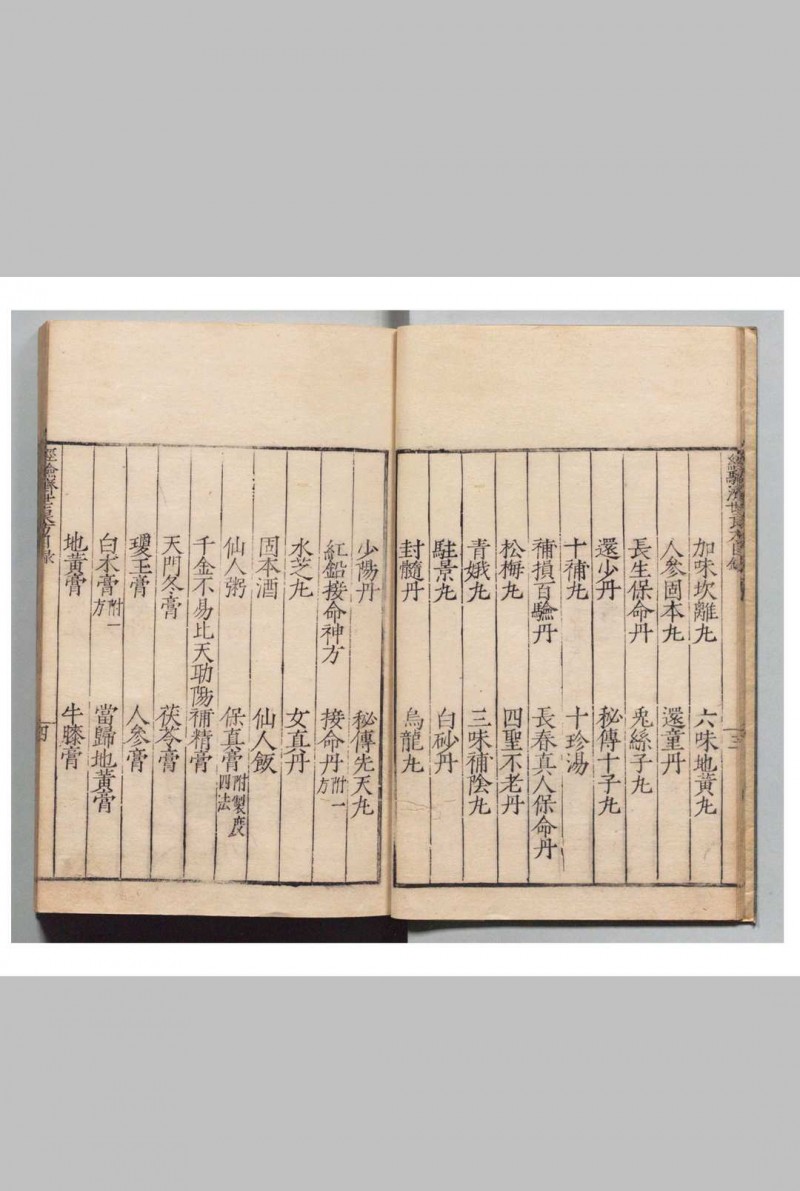 經驗濟世良方目錄
三
加味坎離丸 六味地黃丸
人參固本丸 還童丹
長生保命丹 兎絲子丸
還少丹 秘傳十子丸
十補丸 十珍湯
補損百驗丹 長春真人保命丹
松梅丸 四聖不老丹
青娥丸 三味補陰丸
駐景丸 白砂丹
封髓丹 烏龍丸
少陽丹 秘傳先天丸
紅鉛接命神方 接命丹附一方
水芝丸 女真丹
固本酒 仙人飯
仙人粥 保真膏附製度四法
千金不易比天助陽補精膏
天門冬膏 茯苓膏
瓊玉膏 人參膏
白朮膏附一方 當歸地黃膏
地黃膏 牛膝膏
經驗濟世良方目錄
四